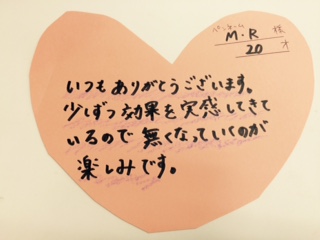 ペンネーム M・R 様
20 才
いつもありがとうございます。
少しずつ効果を実感してきて
いるので無くなっていくのが
楽しみです。